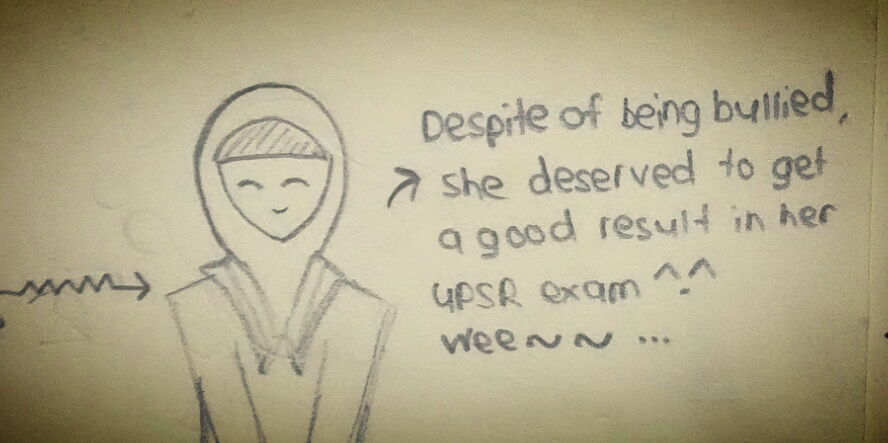 Despite of being bullied,
she deserved to get
a good result in her
UPSR exam ^.^
wee~ ~ ...